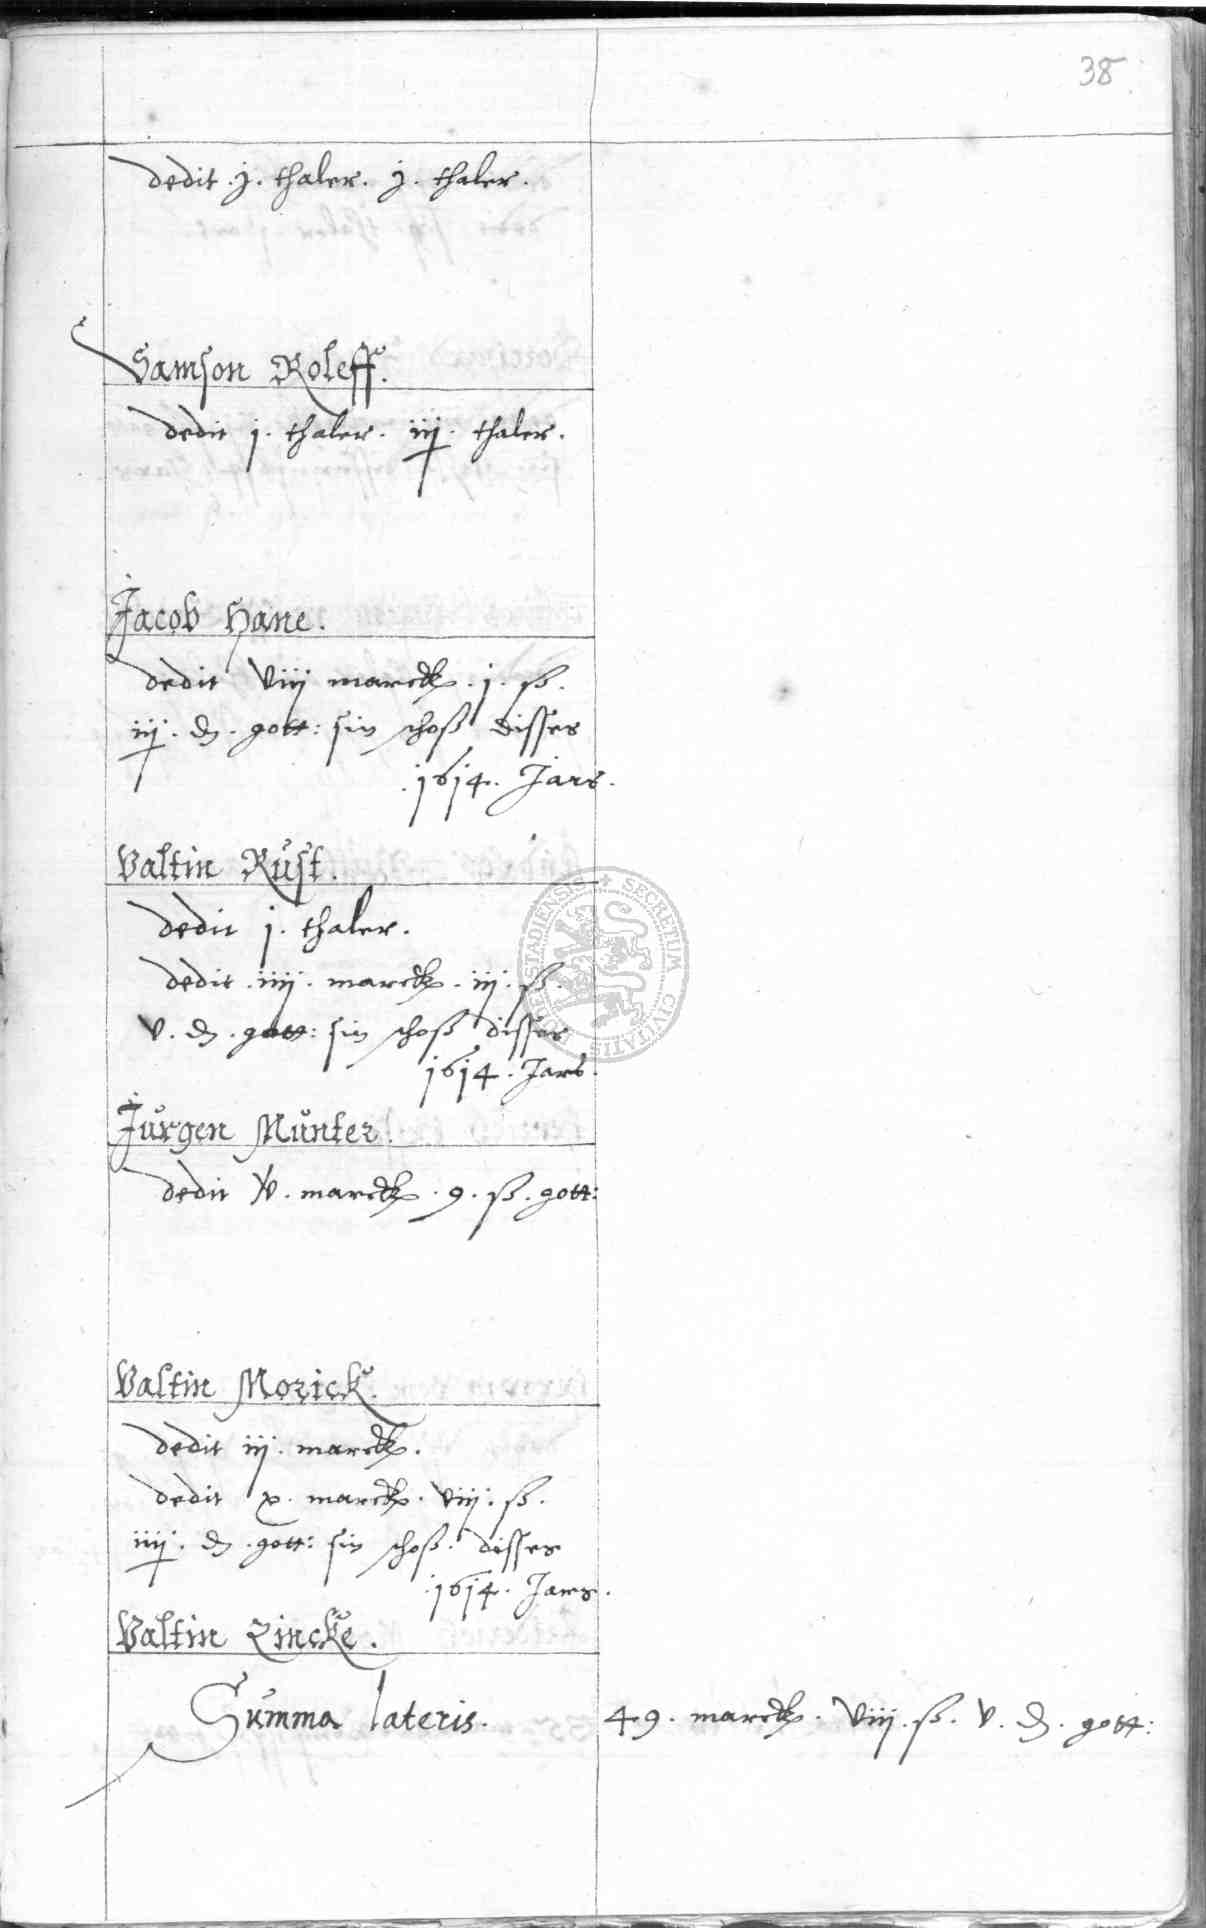 38
dedit . j . thaler . j . thaler .
Samson Roleff.
dedit j . thaler . iij . thaler .
Jacob Hane .
dedit viij marck . j . ß .
iij . ₰ . gott : sin schoß disses
. 1614 . Jars .
Valtin Rust .
dedit j . thaler .
dedit . iiij . marck . iij . ß .
v . ₰ . gott : sin schoß disses
1614 . Jars .
Jurgen Munter .
dedit . marck . 9 . ß . gott :
Valtin Morick .
dedit iij . marck .
dedit x . marck . viij . ß .
iiij . ₰ . gott : sin schoß . disses
. 1614 . Jars .
Valtin Zincke .
Summa lateris . 49 . marck . viij . ß . v . ₰ . gott :
SECRETUM CIVITATIS STADIENSIS